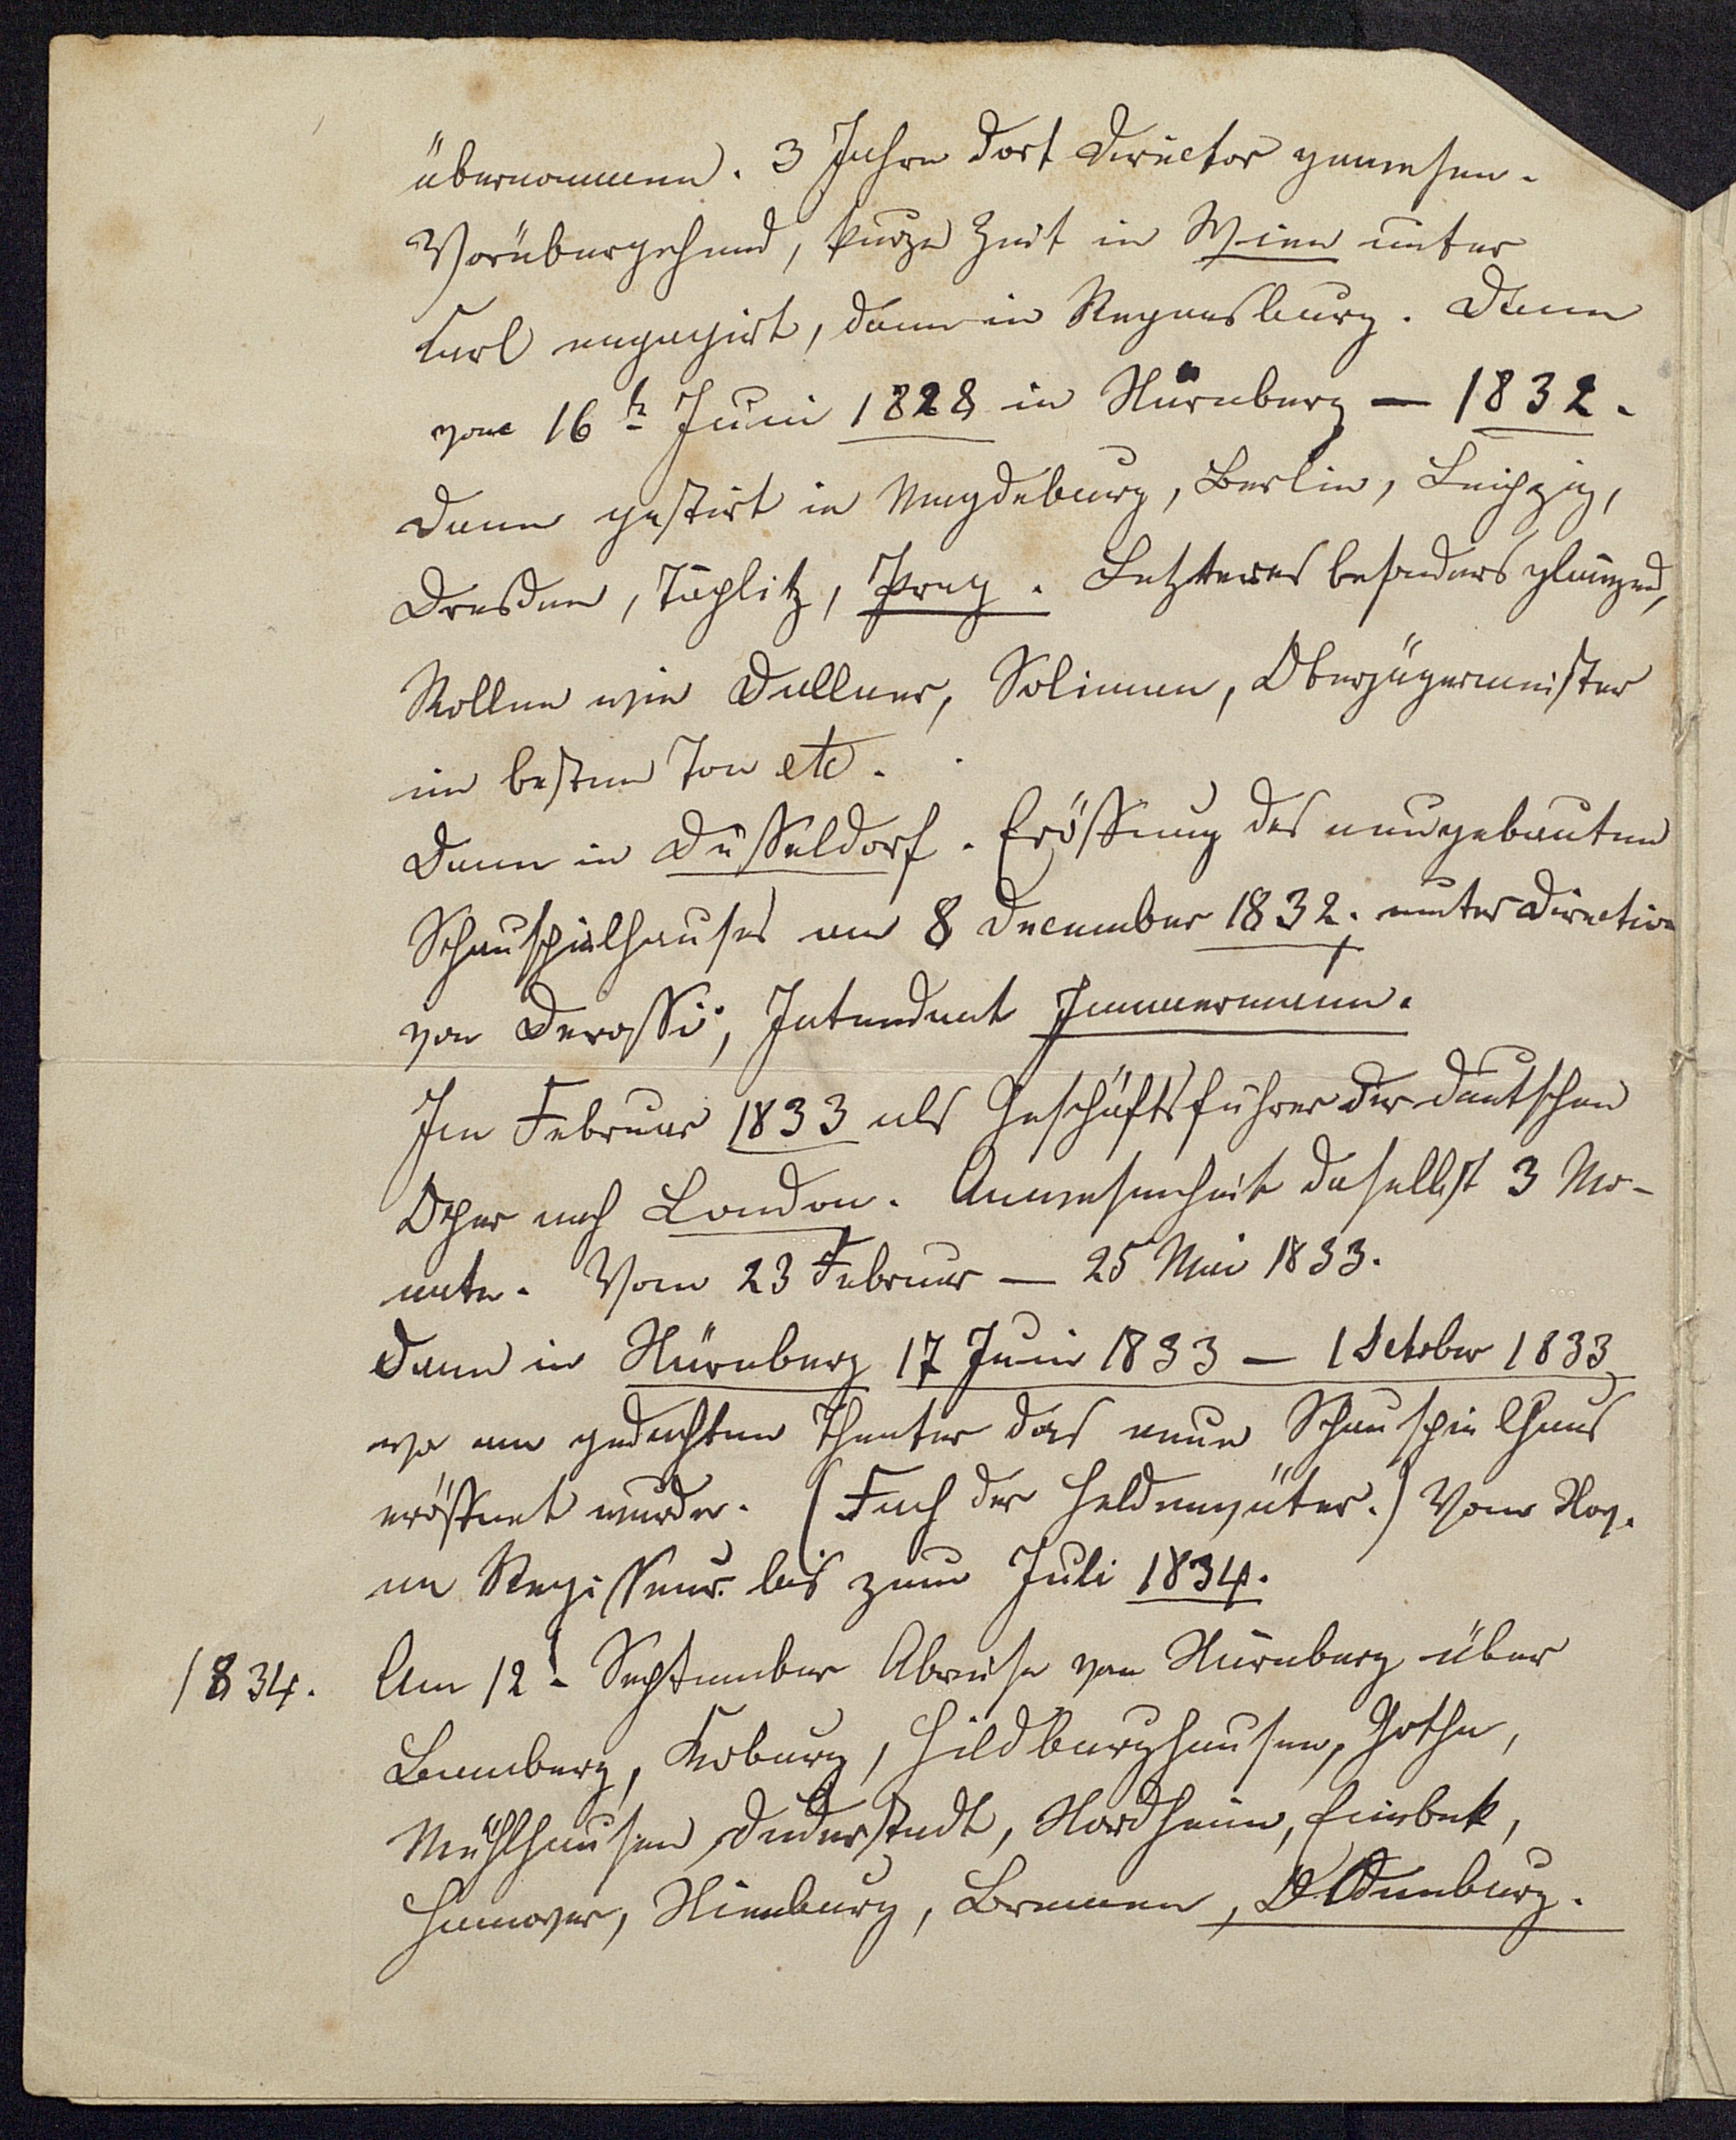 übernommen. 3 Jahre dort Director gewesen.
Vorübergehend, kurze Zeit in Wien unter
Carl engagirt, dann in Regensburg. Dann
vom 16t Juni 1828 in Nürnberg — 1832.
Dann gastirt in Magdeburg, Berlin, Leipzig,
Dresden, Töplitz, Prag. Letzteres besonders glänzend,
Rollen wie Dallner, Soliman, Oberjägermeister
im besten Ton etc.
Dann in Düsseldorf. Eröffnung des neugebauten
Schauspielhauses am 8 December 1832. unter Direction
von Derossi, Intendant Immermann.
Im Februar 1833 als Geschäftsführer der deutschen
Oper nach London. Anwesenheit daselbst 3 Mo-
nate. Vom 23 Februar — 25 Mai 1833.
Dann in Nürnberg 17 Juni 1833 — 1 October 1833
wo am gedachten Theater das neue Schauspielhaus
eröffnet wurde. (Fach der Heldenväter.) Vom Nov.
an Regisseur bis zum Juli 1834.
1834. Am 12t September Abreise von Nürnberg über
Bamberg, Koburg, Hildburghausen, Gotha,
Mühlhausen, Duderstadt, Nordheim, Einbek,
Hannover, Nienburg, Bremen, Oldenburg.